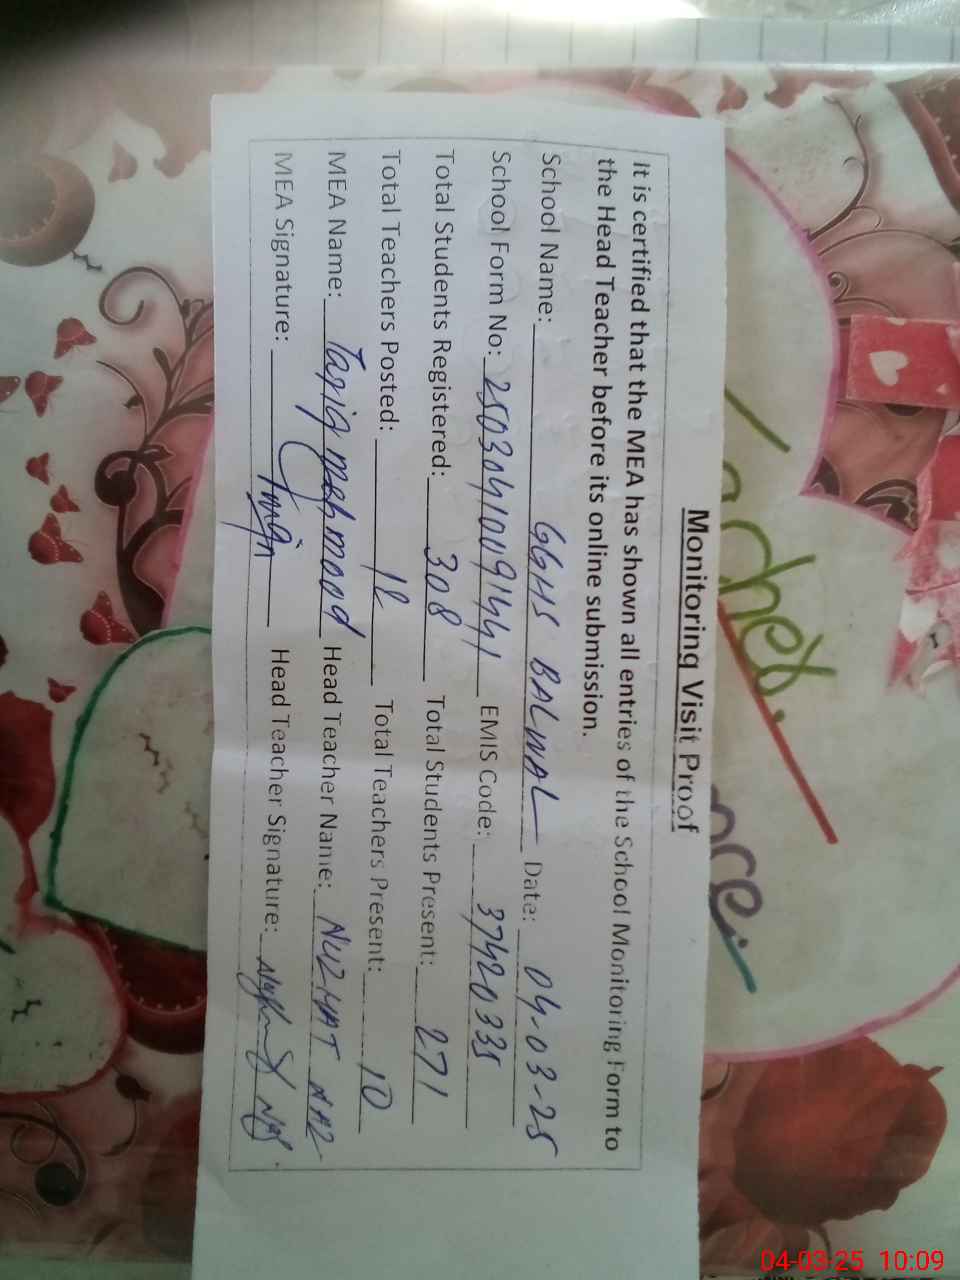 Monitoring Visit Proof
It is certified that the MEA has shown all entries of the School Monitoring Form to
the Head Teacher before its online submission.
School Name: GGHS BALWAL Date: 04-03-25
School Form No: 2503041009441 EMIS Code: 37420335
Total Students Registered: 308 Total Students Present: 271
Total Teachers Posted: 12 Total Teachers Present: 10
MEA Name: Tariq Mehmood Head Teacher Name: NUZHAT NAZ
MEA Signature: Head Teacher Signature:
04-03-25 10:09